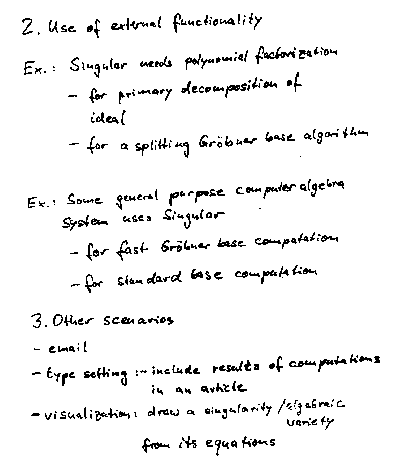 2. Use of external functionality
Ex.: Singular needs polynomial factorization
- for primary decomposition of
ideal
- for a splitting Gröbner base algorithm
Ex.: Some general purpose computer algebra
System uses Singular
- for fast Gröbner base computation
- for standard base computation
3. Other scenarios
- email
- type setting :- include results of computations
in an article
- visualization: draw a singularity / algebraic
variety
from its equations